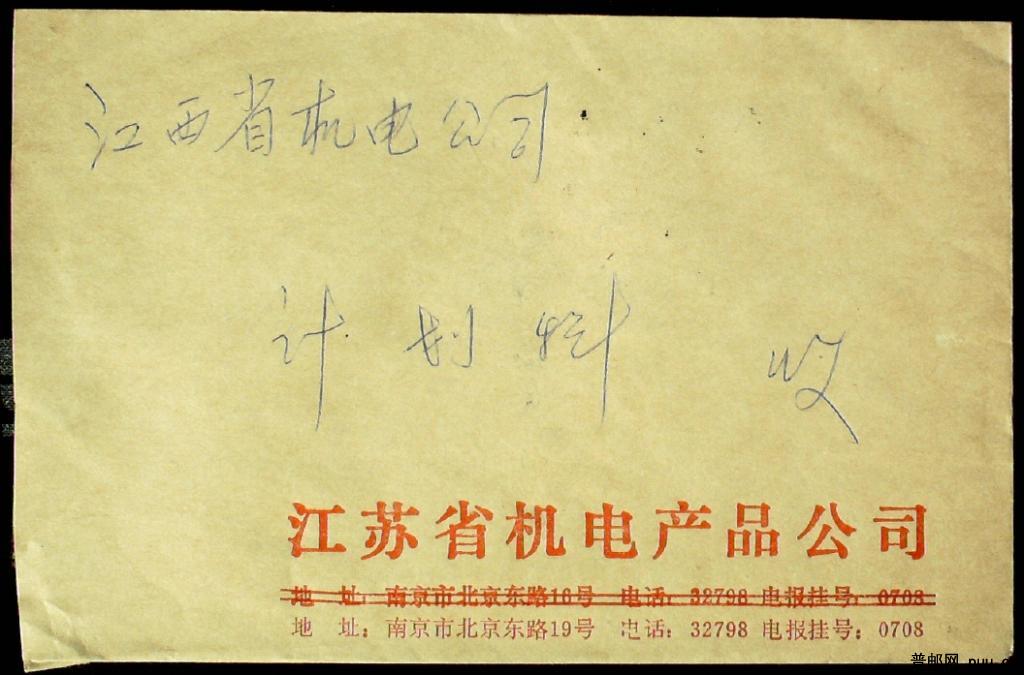 江西省机电公司
计划科 收
江苏省机电产品公司
地 址：南京市北京东路16号 电话：32798 电报挂号：0708
地 址：南京市北京东路19号 电话：32798 电报挂号：0708
普邮网